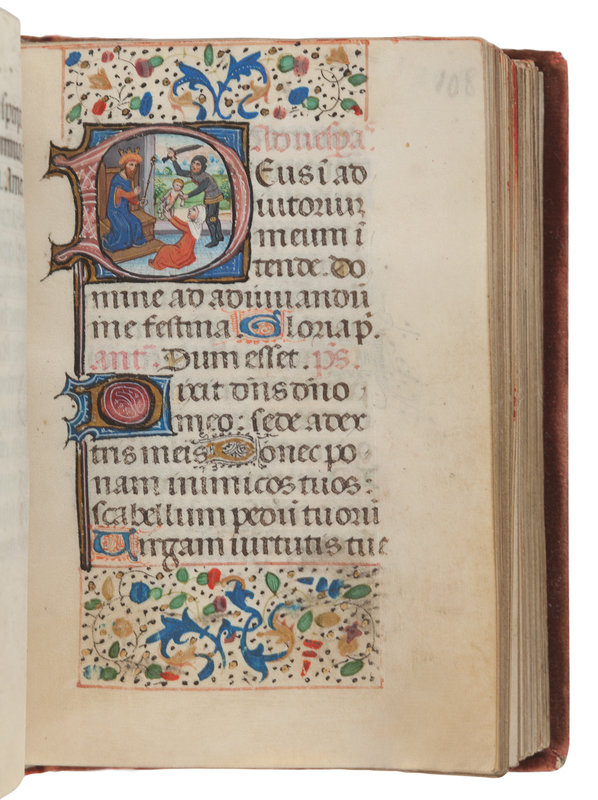 108
Ad vesp̄a.
Deus ī ad
iutoriuz
meum ī
tende. do
mine ad adiuuandū
me festina. Gloria p̄.
ant̄. Dum esset. ps̄.
Dixit dn̄s dn̄o
meo: sede a dex
tris meis Donec po
nam inimicos tuos:
scabellum pedū tuoru
Uirgam uirtutis tue